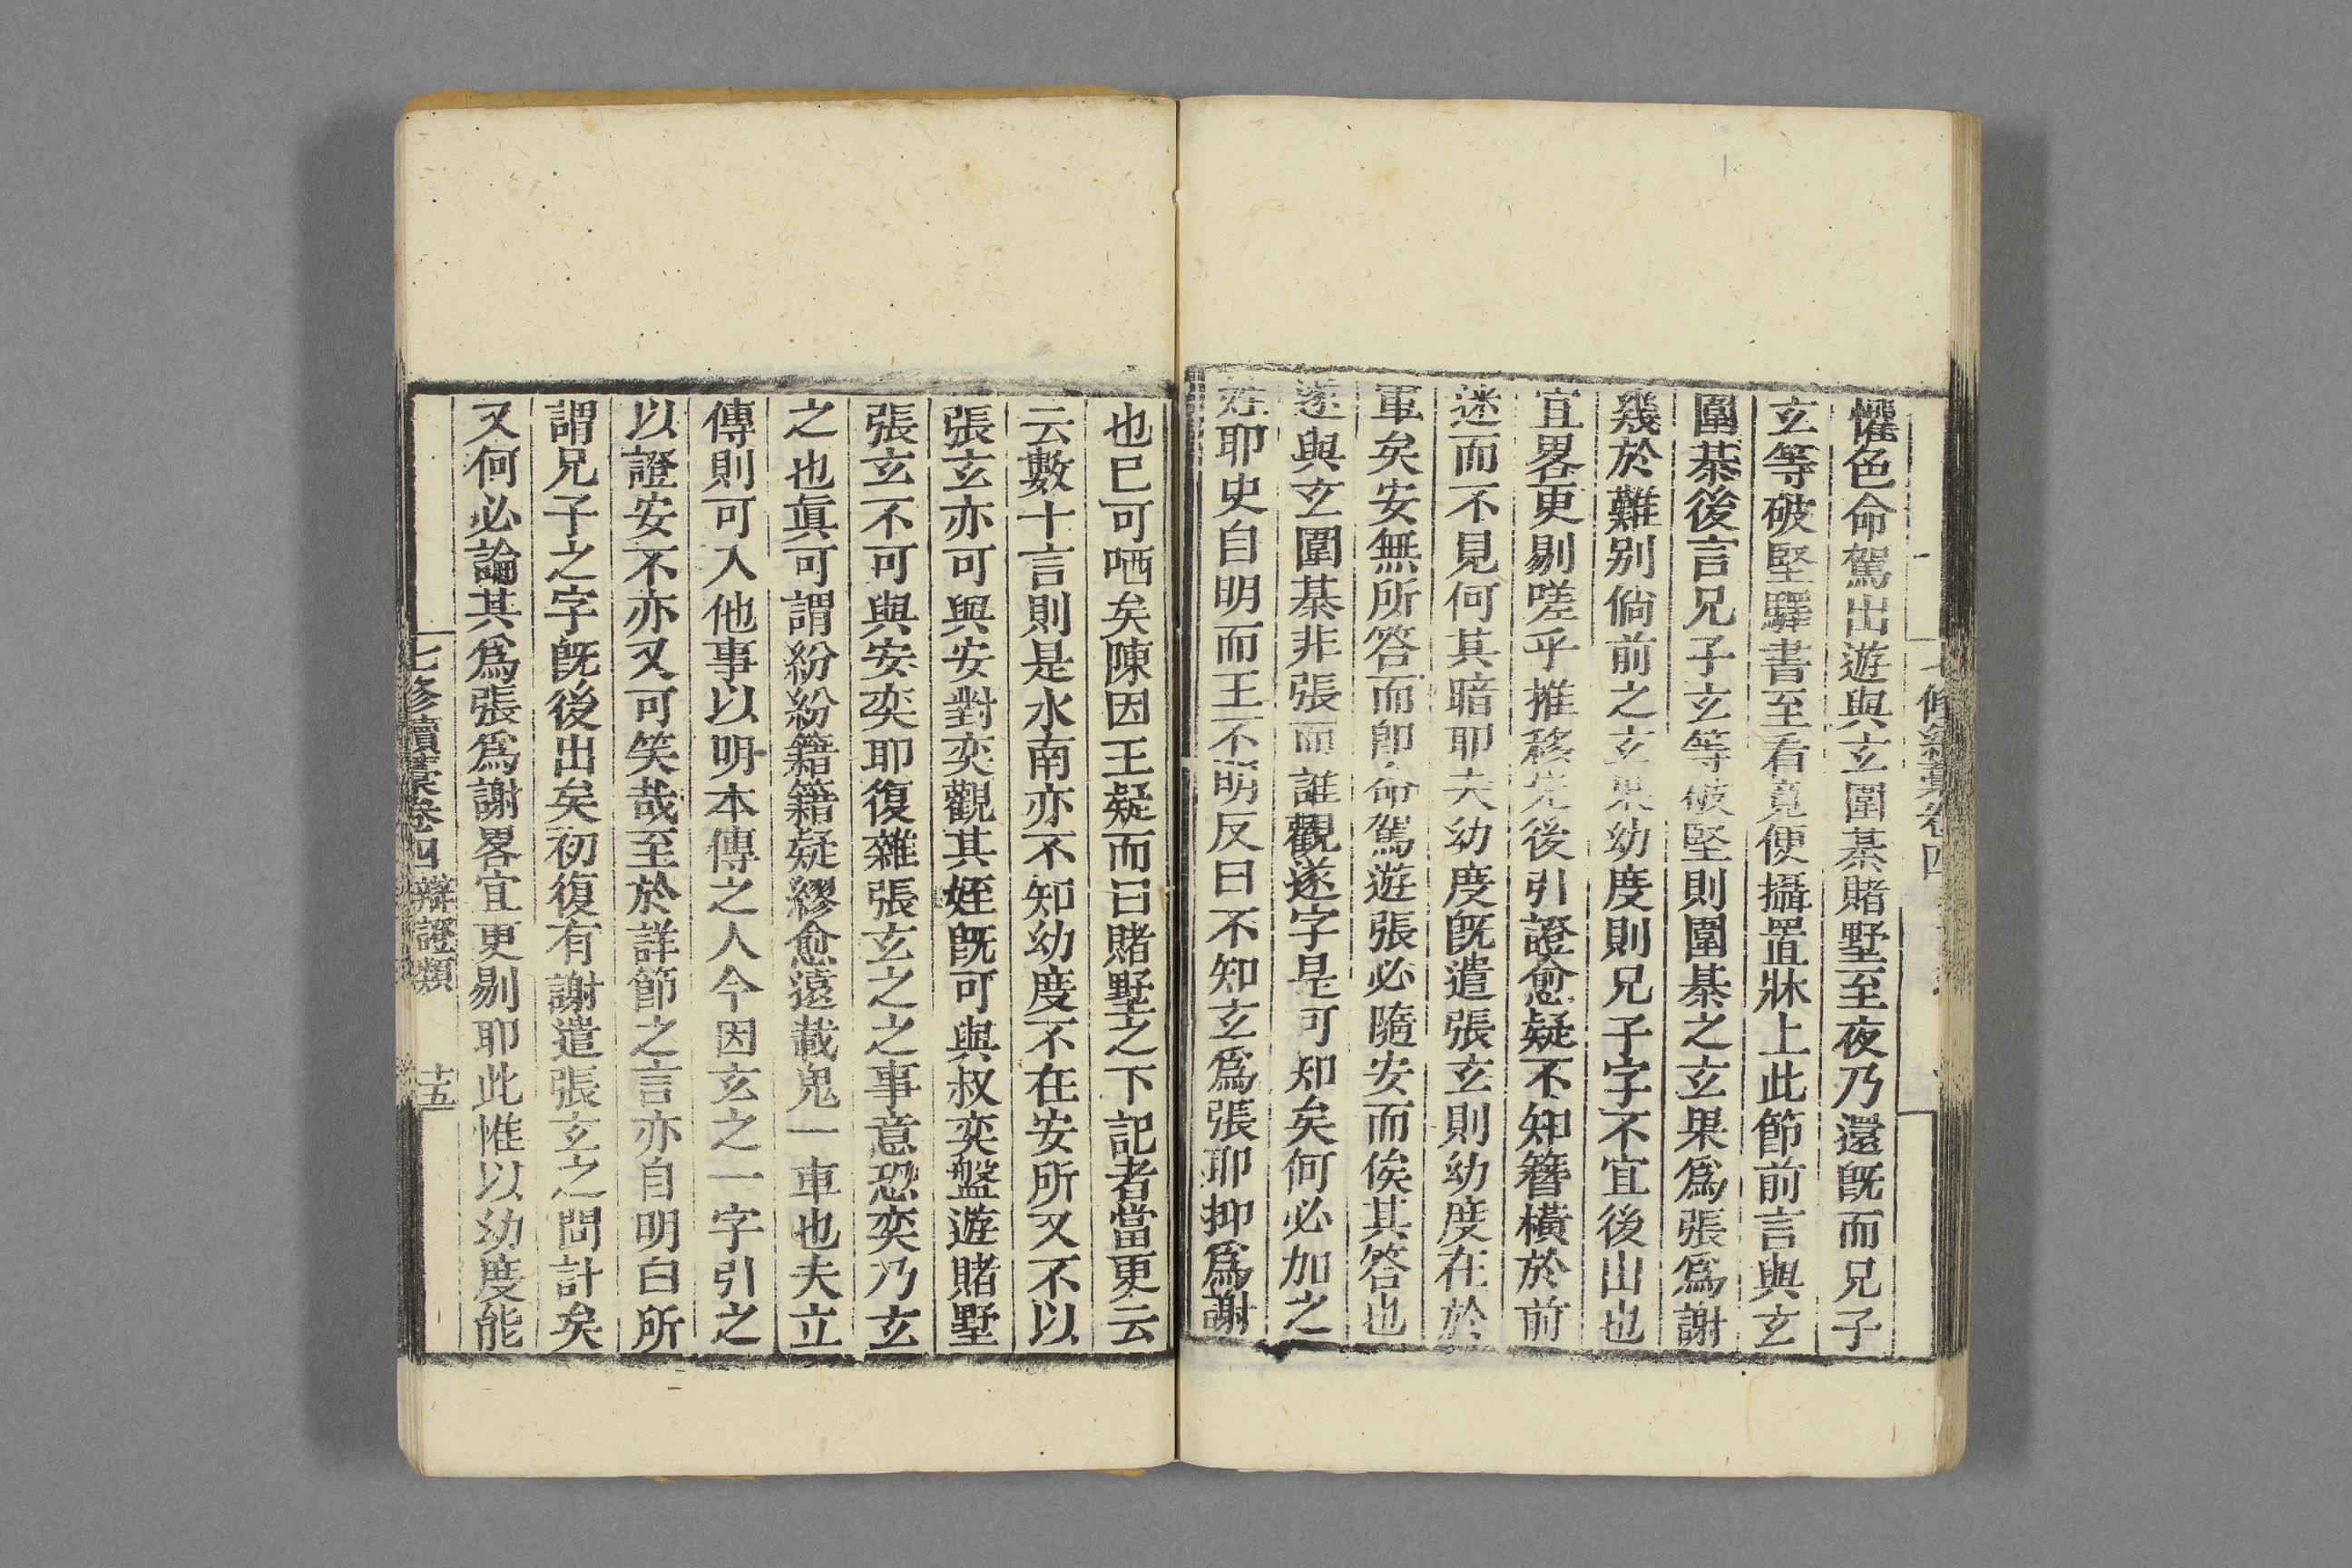 懼色命駕出遊與玄圍棊賭墅至夜乃還旣而兄子
玄等破堅驛書至看竟便攝置牀上此節前言與玄
圍棊後言兄子玄等破堅則圍棊之玄果爲張爲謝
幾於難别倘前之玄果幼度則兄子字不宜後出也
宜畧更剔嗟乎推移完後引證愈疑不知簪橫於前
迷而不見何其暗耶夫幼度旣遣張玄則幼度在於
軍矣安無所答而卽命駕遊張必隨安而俟其答也
遂與玄圍棊非張而誰觀遂字是可知矣何必加之
姪耶史自明而王不萌反曰不知玄爲張耶抑爲謝
也已可哂矣陳因王疑而曰賭墅之下記者當更云
云數十言則是水南亦不知幼度不在安所又不以
張玄亦可與安對奕觀其姪旣可與叔奕盤遊賭墅
張玄不可與安奕耶復雜張玄之之事意恐奕乃玄
之也眞可謂紛紛籍籍疑繆愈遠載鬼一車也夫立
傳則可入他事以明本傳之人今因玄之一字引之
以證安不亦又可笑哉至於詳節之言亦自明白所
謂兄子之字旣後出矣初復有謝遣張玄之問計矣
又何必論其爲張爲謝畧宜更剔耶此惟以幼度能
七修續藁卷四 辯證類 十五